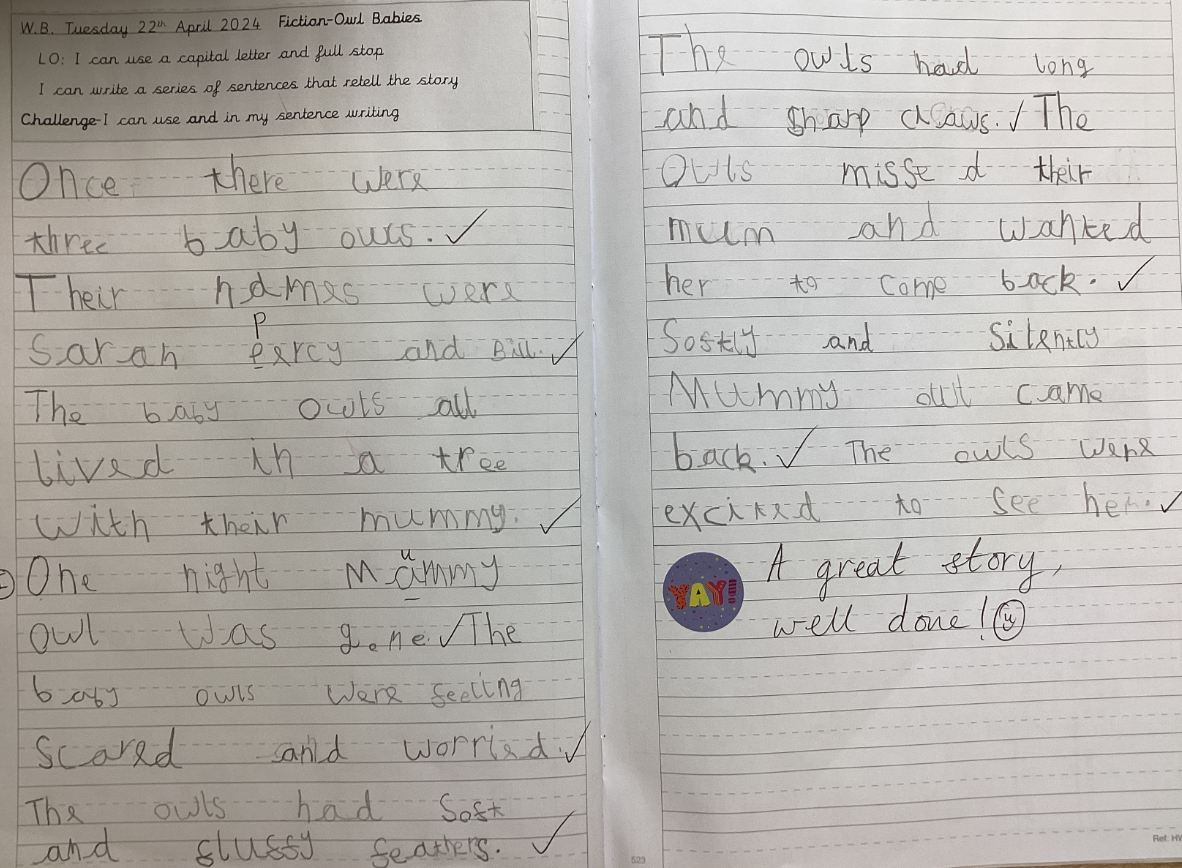 W.B. Tuesday 22nd April 2024 Fiction-Owl Babies
LO: I can use a capital letter and full stop
I can write a series of sentences that retell the story
Challenge-I can use and in my sentence writing
Once there were
three baby owls. ✓
Their names were
P
Sarah percy and Bill. ✓
The baby owls all
lived in a tree
with their mummy. ✓
u
One night Mammy
owl was gone. ✓ The
baby owls were feeling
scared and worried. ✓
The owls had soft
and fluffy feathers. ✓
523
The owls had long
and sharp claws. ✓ The
owls missed their
mum and wanted
her to come back. ✓
Softly and silently
Mummy owl came
back. ✓ The owls were
excited to see her. ✓
YAY!
A great story,
well done!
Ref: HV